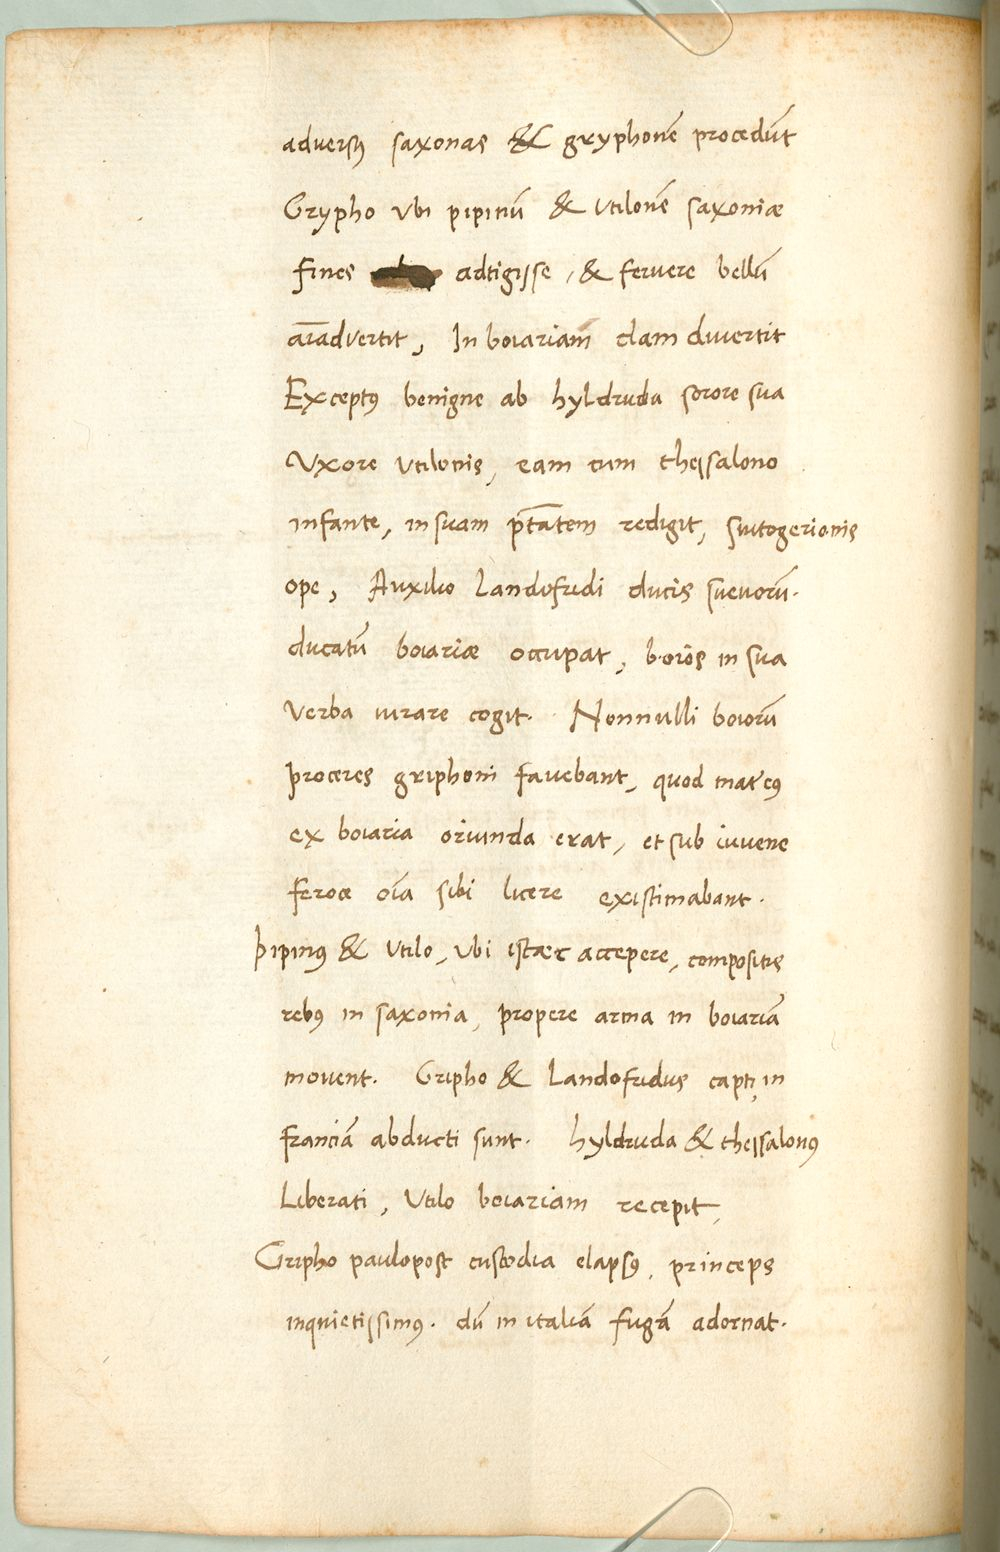 adversꝰ saxonas & gryphonē procedūt
Grypho ubi pipinū & utilonē saxoniæ
fines adtigisse, & fervere bellū
aīadvertit, In boiariam clam divertit
Exceptꝰ benigne ab hyldruda sorore sua
Uxore utilonis, eam cum thessalono
infante, in suam ptātem redigit, suitogerionis
ope, Auxilio Landofridi ducis suevorū.
ducatū boiariæ occupat, boios in sua
verba iurare cogit. Nonnulli boiorū
proceres griphoni favebant, quod mater eꝰ
ex boiaria oriunda erat, et sub iuvene
feroce oīa sibi licere existimabant.
Pipinꝰ & Utilo, ubi istæc accepere, compositis
rebꝰ in saxonia, propere arma in boiariā
movent. Gripho & Landofridus capti, in
franciā abducti sunt. hyldruda & thessalonꝰ
Liberati, Utilo boiariam recepit,
Gripho paulopost custodia elapsꝰ, princeps
inquietissimꝰ. dū in italiā fugā adornat.